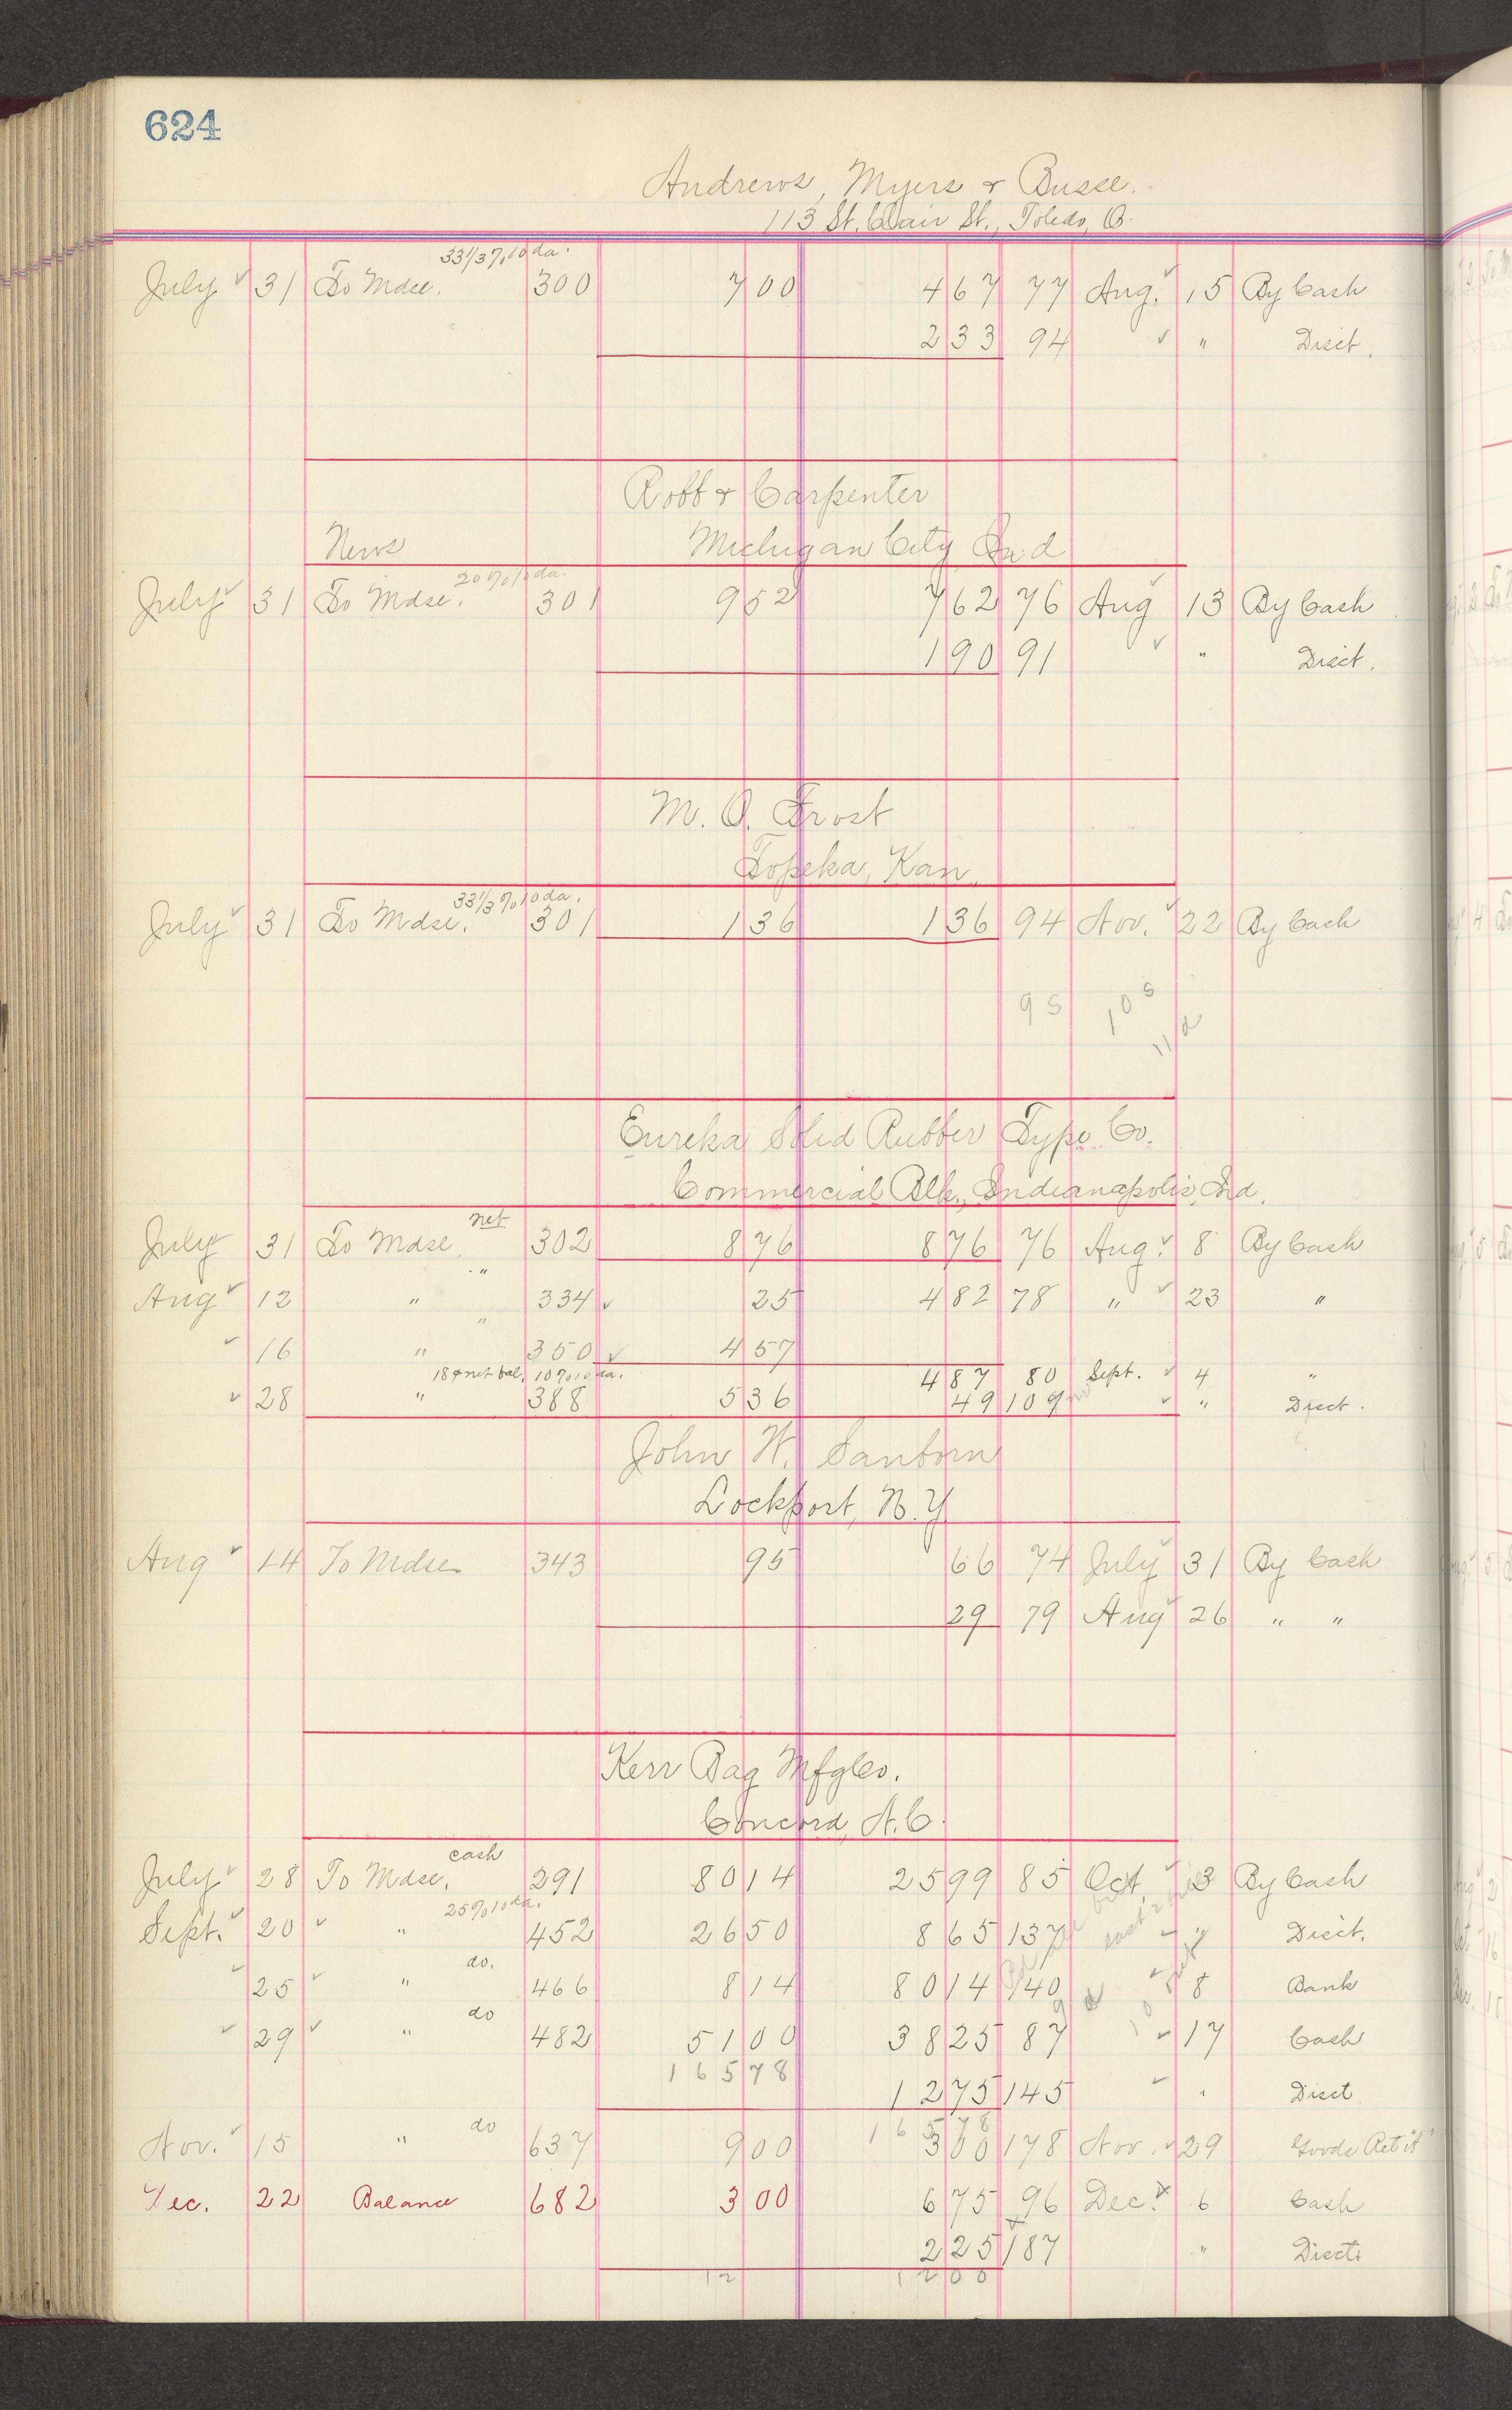 624
Andrews, Myers & Busse.
113 St. Clair St., Toledo, O.
33 1/3 % 10 da.
July 31 To Mdse. 300 7 00 4 67 77 Aug. 15 By Cash
2 33 94 " Disct.
Robb & Carpenter
News Michigan City Ind
20 % 10 da.
July 31 To Mdse. 301 9 52 7 62 76 Aug 13 By Cash
1 90 91 " Disct.
M. O. Frost
Topeka, Kan.
33 1/3 % 10 da.
July 31 To Mdse. 301 1 36 1 36 94 Nov. 22 By Cash
95 10 5
11/2
Eureka Solid Rubber Type Co.
Commercial Blk., Indianapolis, Ind.
net
July 31 To Mdse. 302 8 76 8 76 76 Aug. 8 By Cash
"
Aug 12 " 334 25 4 82 78 " 23 "
"
16 " 350 4 57
18¢ net bal. 10 % 10 da. 4 87 80 Sept. 4 "
28 " 388 5 36 49 109 " Disct.
John W. Sanborn
Lockport, N.Y.
Aug 14 To Mdse 343 95 66 74 July 31 By Cash
29 79 Aug 26 " "
Kerr Bag Mfg Co.
Concord, N.C.
cash
July 28 To Mdse. 291 80 14 25 99 85 Oct. 3 By Cash
25 % 10 da.
Sept. 20 " 452 26 50 8 65 137 " Disct.
do.
25 " 466 8 14 80 14 140 8 Bank
do
29 " 482 51 00 38 25 87 17 Cash
165 78
12 75 145 " Disct
165 78
do
Nov. 15 " 637 9 00 3 00 178 Nov. 29 Goods Ret'd
Dec. 22 Balance 682 3 00 6 75 96 Dec. 6 Cash
2 25 187 " Disct.
12 1200